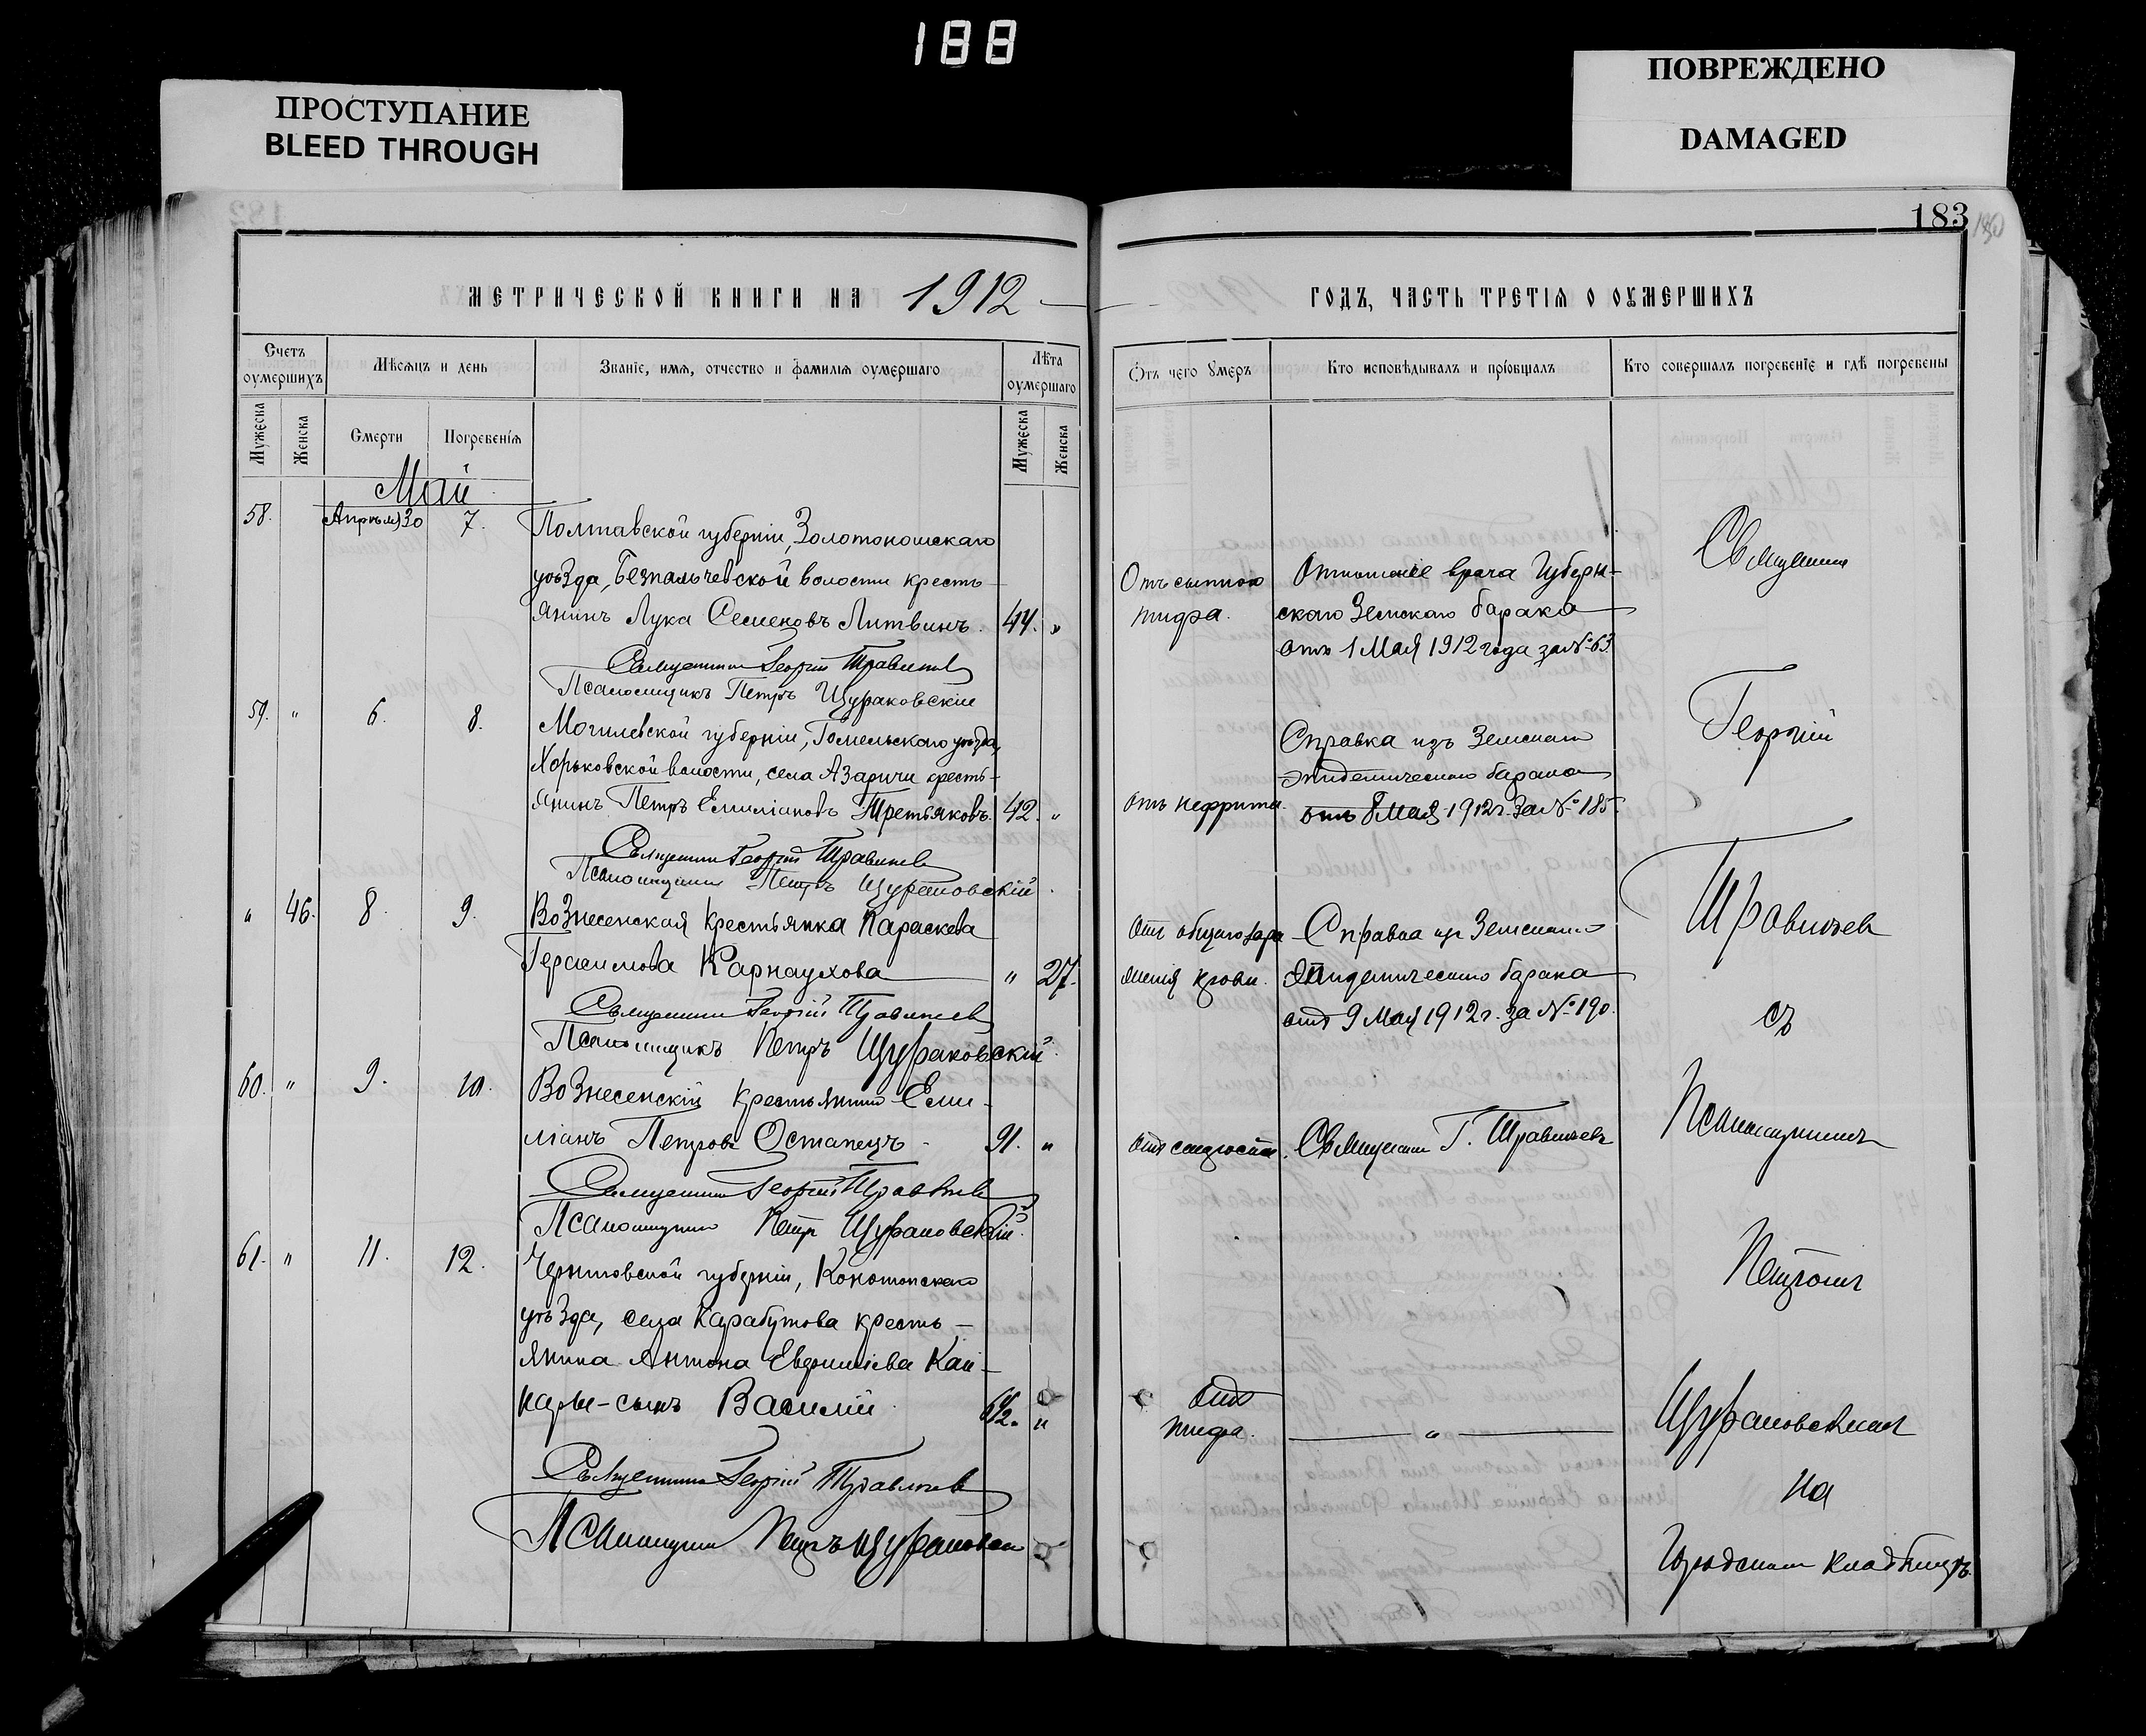 188
ПРОСТУПАНИЕ
BLEED THROUGH
ПОВРЕЖДЕНО
DAMAGED
183
МЕТРИЧЕСКОЙ КНИГИ НА 1912
ГОДЪ, ЧАСТЬ ТРЕТІЯ О ОУМЕРШИХЪ
Счетъ оумершихъ
Мѣсяцъ и день
Званіе, имя, отчество и фамилія оумершаго
Лѣта оумершаго
Отъ чего умеръ
Кто исповѣдывалъ и пріобщалъ
Кто совершалъ погребеніе и гдѣ погребены
Мужеска
Женска
Смерти
Погребенія
Мужеска
Женска
Май
58. Апрѣля 30 7. Полтавской губерніи, Золотоношскаго
уѣзда, Безпальчевской волости кресть-
янинъ Лука Семеновъ Литвинъ. 44. "
Отъ сыпного
тифа.
Отношеніе врача Губерн-
скаго Земскаго барака
отъ 1 Мая 1912 года за № 63
Священникъ Георгій Травинъ
Псаломщикъ Петръ Щураковскій
59. " 6. 8. Могилевской губерніи, Гомельскаго уѣзда,
Хорьковской волости, села Азаричи кресть-
янинъ Петръ Емиліановъ Третьяковъ. 42. "
Отъ нефрита.
Справка изъ Земскаго
эпидемическаго барака
отъ 8 Мая 1912 г. за № 185.
Священникъ Георгій
Псаломщикъ Петръ Щураковскій.
" 46. 8. 9. Вознесенская крестьянка Параскева
Герасимова Карнаухова " 27.
Отъ общаго зара-
женія крови.
Справка изъ Земскаго
эпидемическаго барака
отъ 9 Мая 1912 г. за № 190.
Священникъ Георгій
Псаломщикъ Петръ Щураковскій.
60. " 9. 10. Вознесенскій крестьянинъ Еми-
ліанъ Петровъ Остапецъ 91. "
Отъ старости.
Священникъ Г.
Священникъ Георгій
Псаломщикъ Петръ Щураковскій.
61. " 11. 12. Черниговской губерніи, Конотопскаго
уѣзда, села Карабутова кресть-
янина Антона
сынъ Василій "
Отъ
тифа.
"
Священникъ Георгій
Псаломщикъ Петръ Щураковскій
Священникъ
Георгій
съ
Псаломщикомъ
Петромъ
Щураковскимъ
на
Городскомъ кладбищѣ.